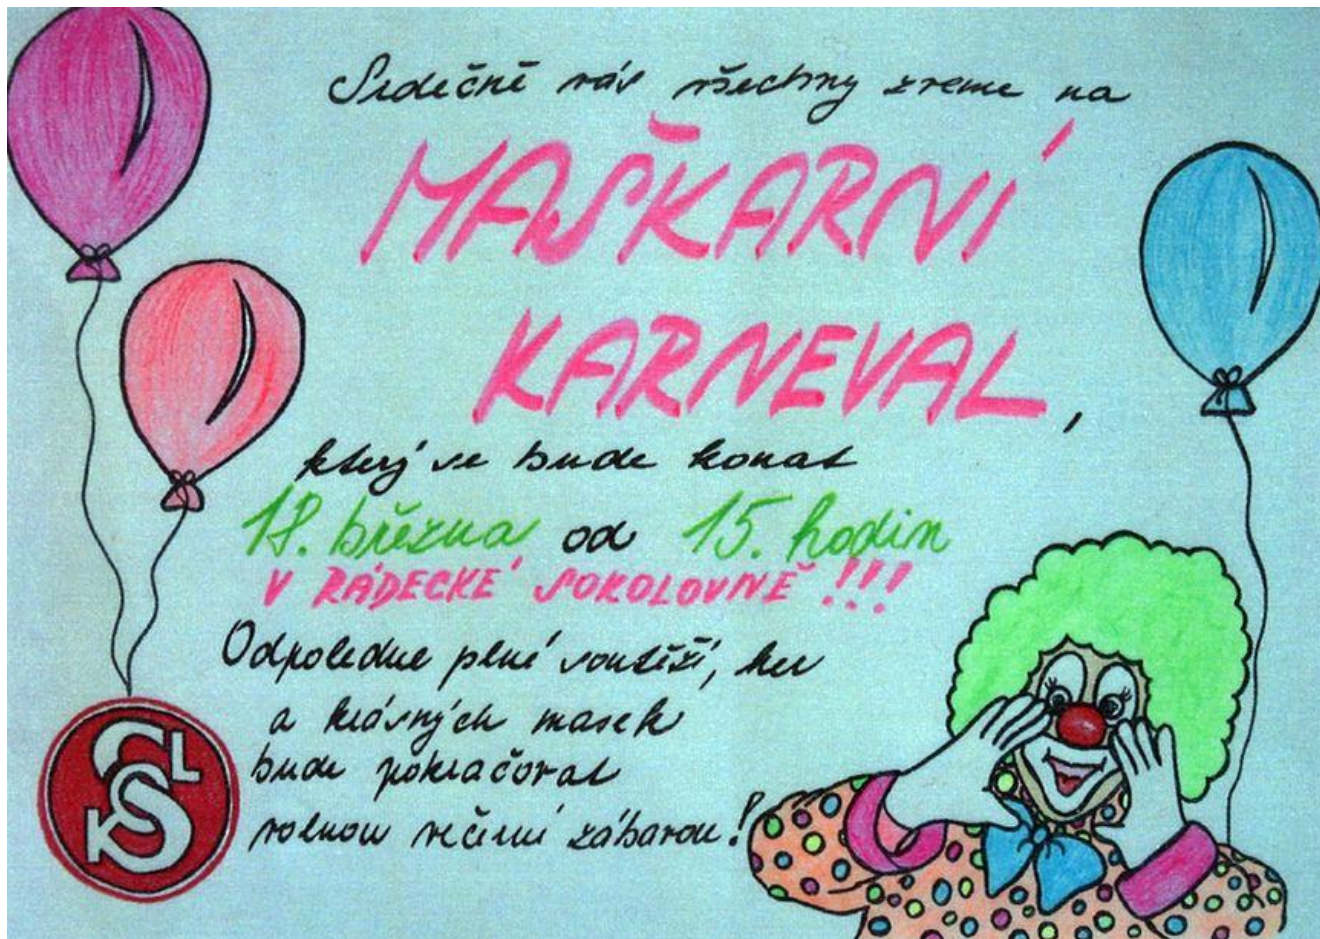 Srdečně vás všechny zveme na
MAŠKARNÍ
KARNEVAL,
který se bude konat
18. března od 15. hodin
V RÁDECKÉ SOKOLOVNĚ!!!
Odpoledne plné soutěží, her
a krásných masek
bude pokračovat
volnou večerní zábavou!
SOKOL